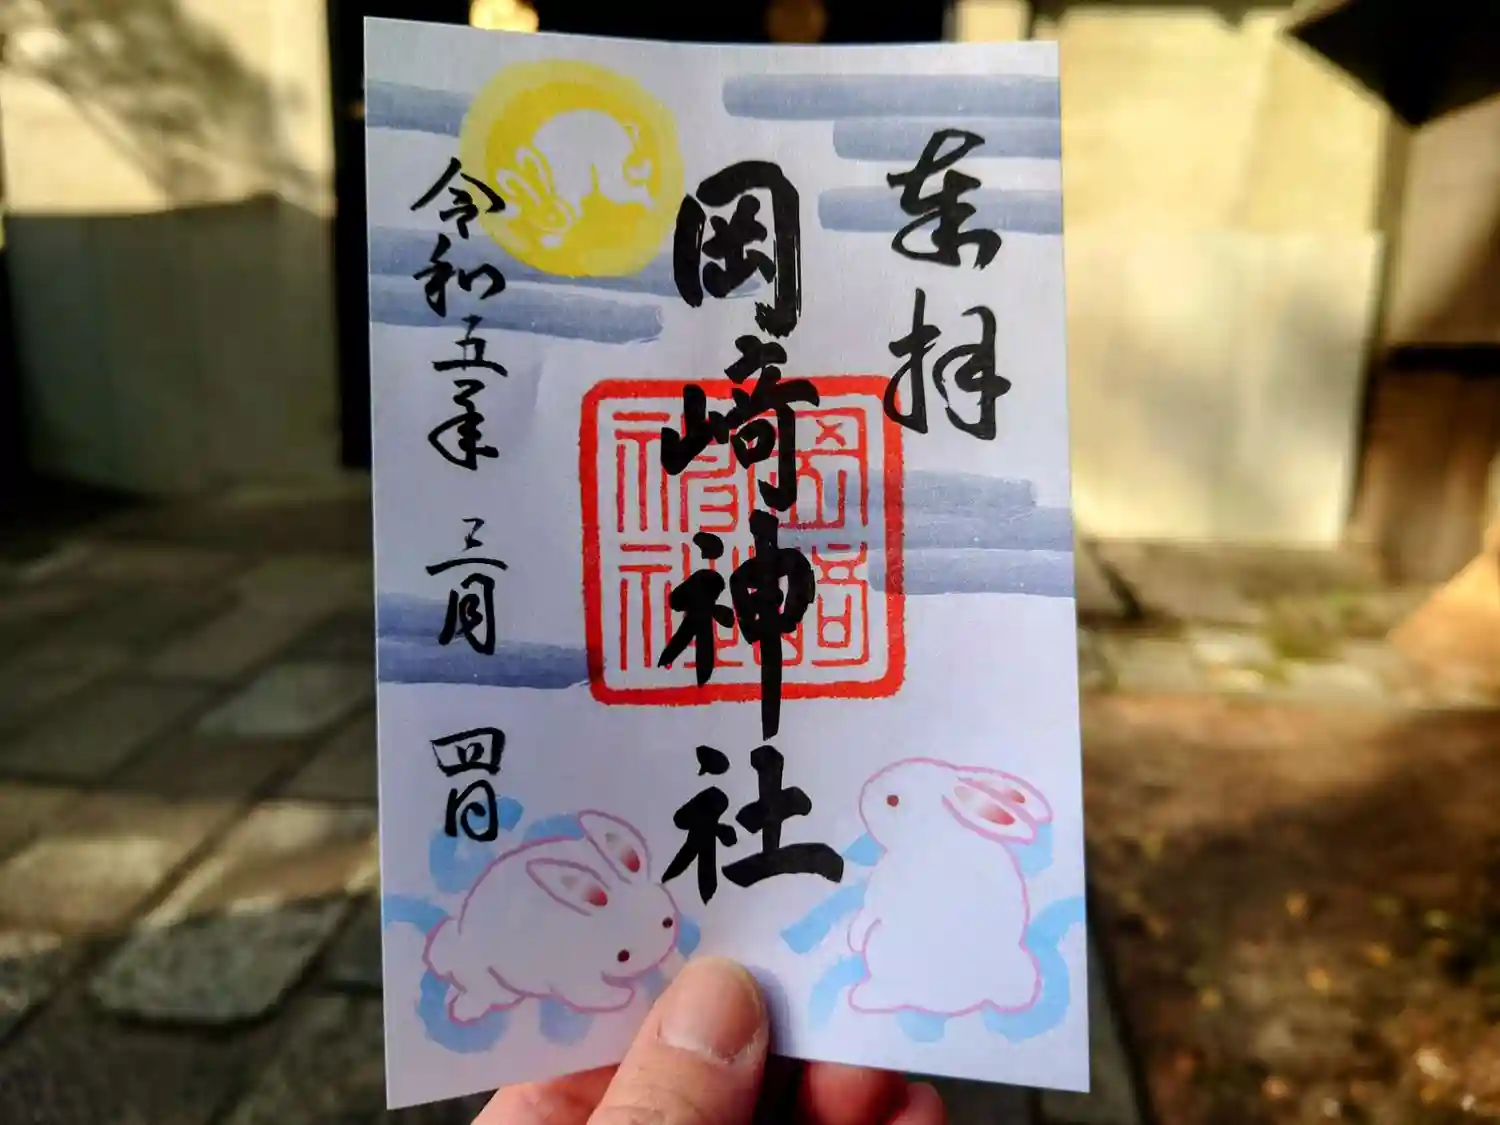 奉拝
岡崎神社
岡崎神社
令和五年 三月 四日